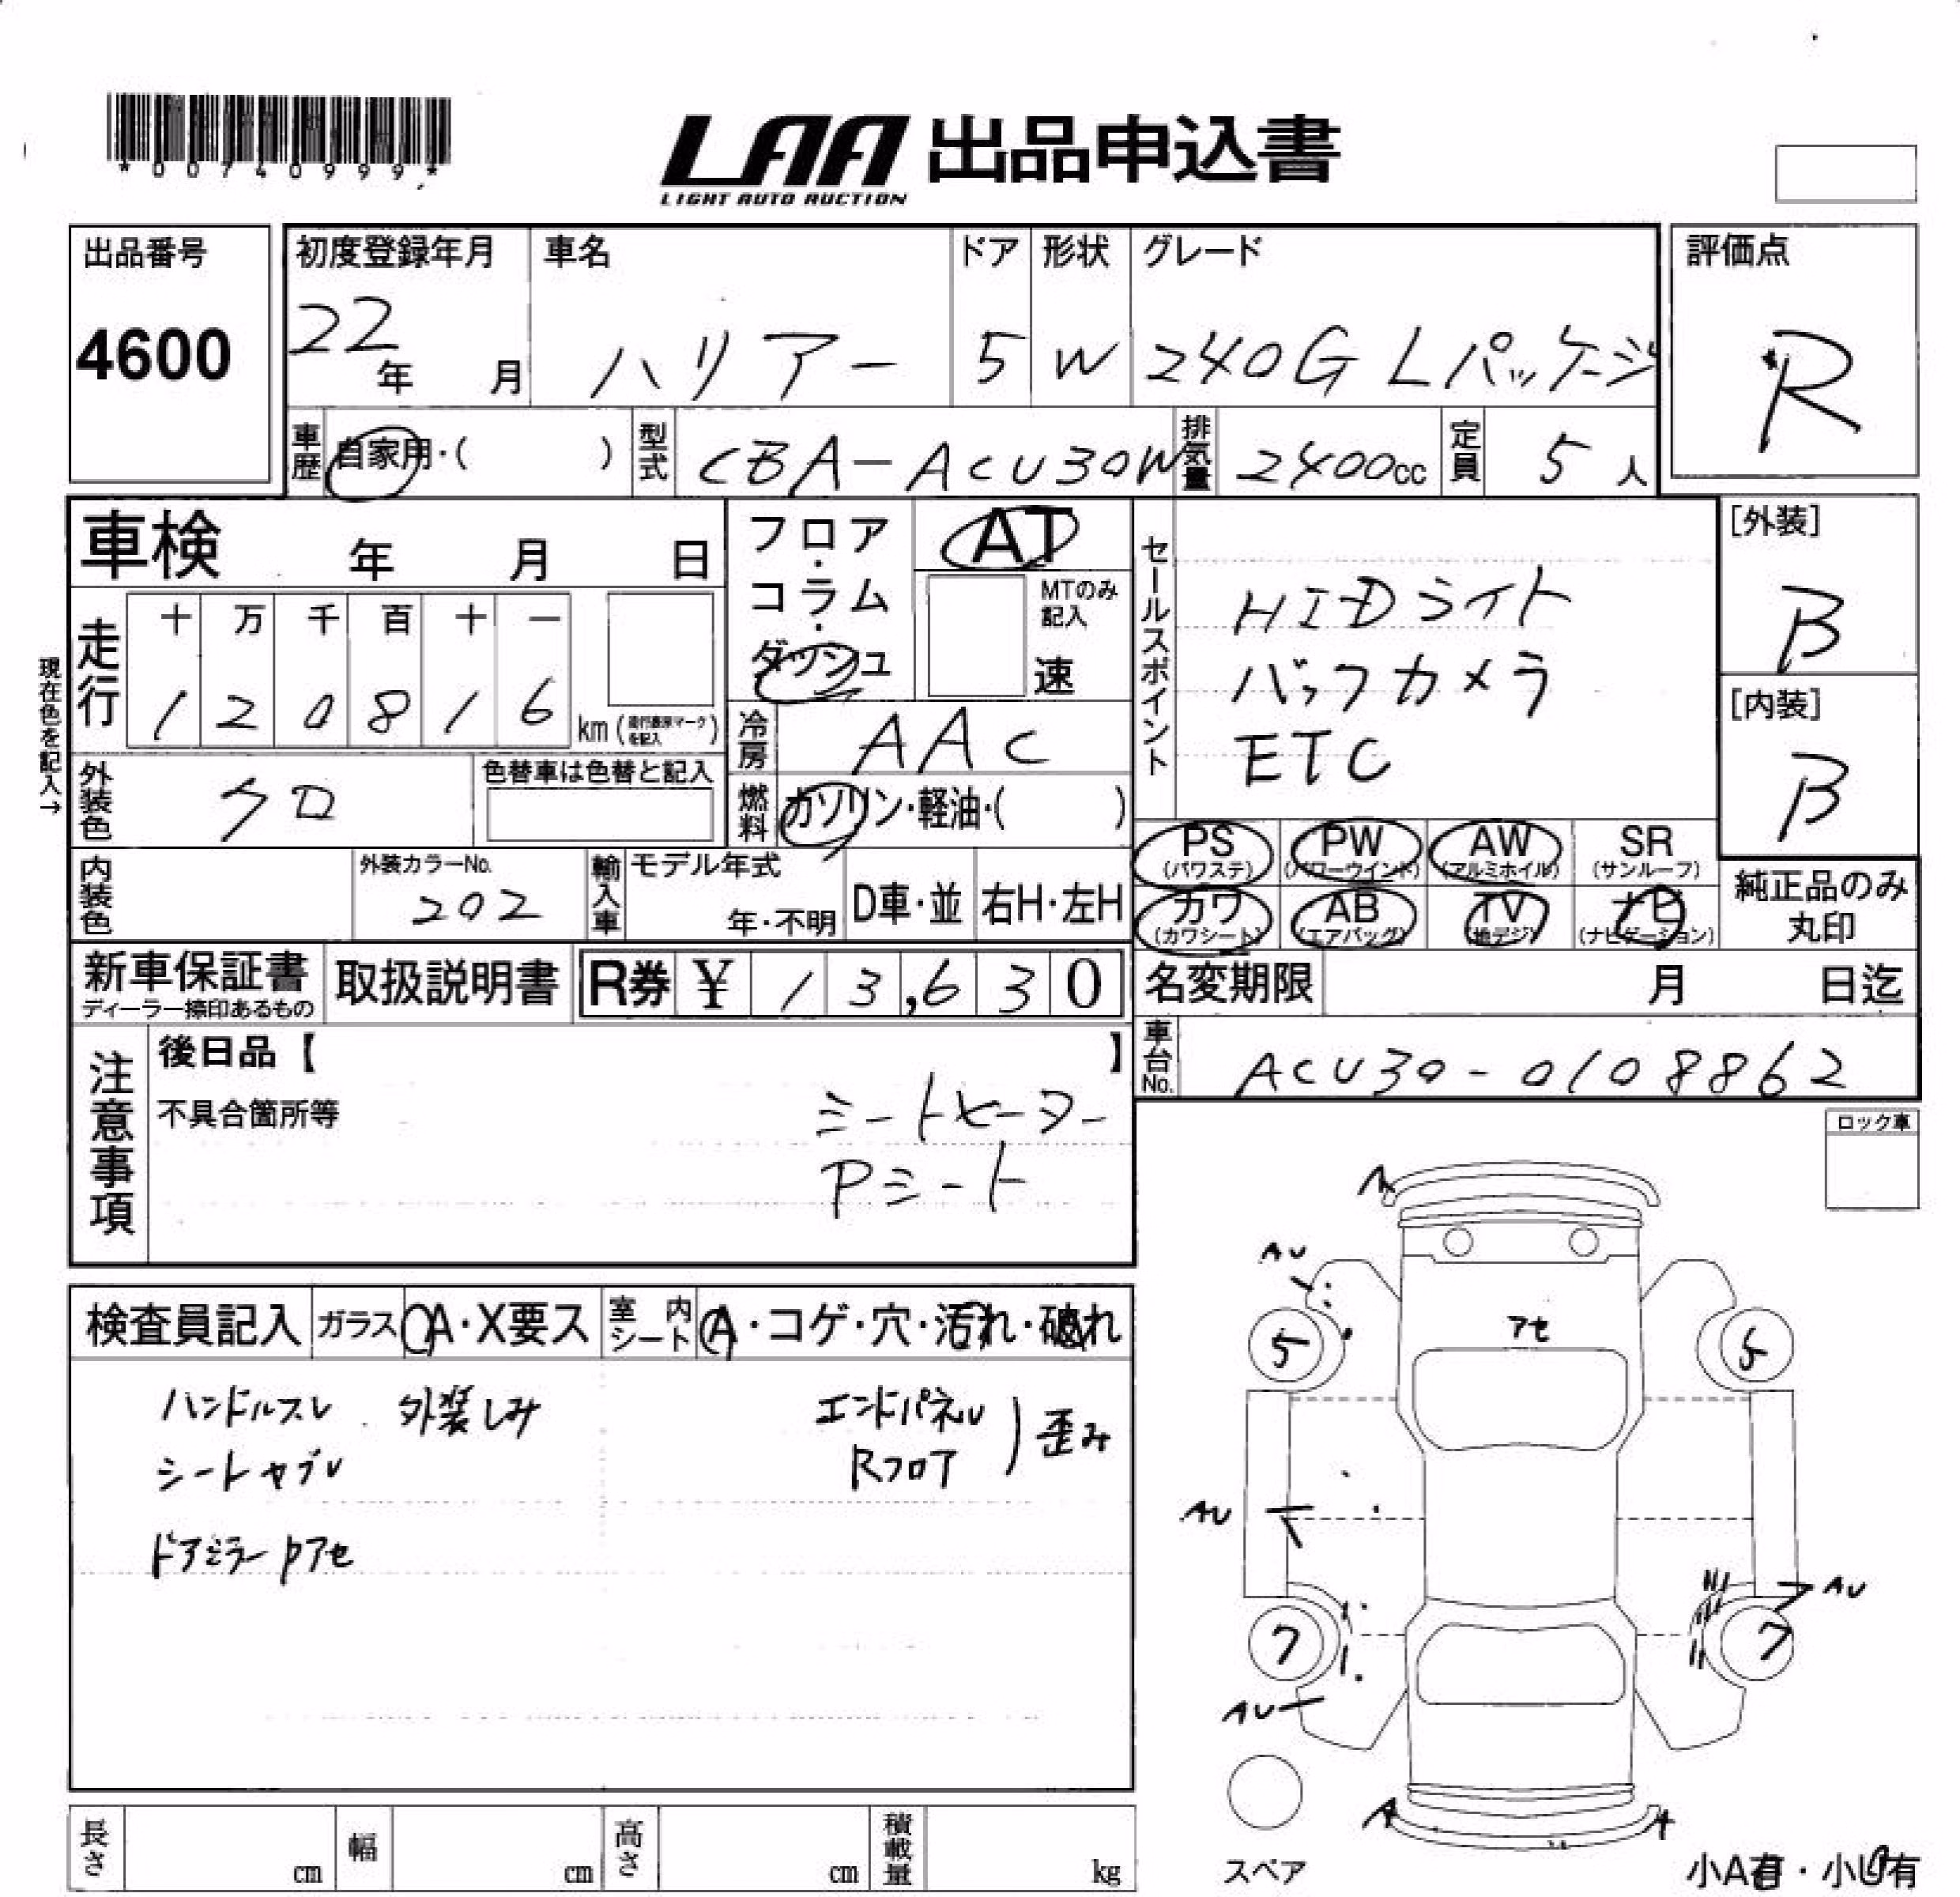 *00740999*
LAA 出品申込書
LIGHT AUTO AUCTION
出品番号
4600
初度登録年月
22年 月
車名
ハリアー
ドア
5
形状
W
グレード
240G Lパッケージ
評価点
R
車歴 自家用・( )
型式 CBA-ACU30W
排気量 2400cc
定員 5人
車検 年 月 日
フロア・コラム・ダッシュ
AT
MTのみ記入
速
セールスポイント
HIDライト
バックカメラ
ETC
[外装]
B
[内装]
B
現在色を記入→
走行
十 万 千 百 十 一
1 2 0 8 1 6 km
冷房 AAC
外装色 クロ
色替車は色替と記入
燃料 ガソリン・軽油・( )
PS (パワステ)
PW (パワーウインド)
AW (アルミホイル)
SR (サンルーフ)
カワ (カワシート)
AB (エアバッグ)
TV (地デジ)
ナビ (ナビゲーション)
純正品のみ丸印
内装色
外装カラーNo.
202
輸入車
モデル年式
年・不明
D車・並
右H・左H
新車保証書
ディーラー捺印あるもの
取扱説明書
R券 ¥ 13,630
名変期限 月 日迄
車台No. ACU30-0108862
注意事項
後日品【 】
不具合箇所等
シートヒーター
Pシート
ロック車
検査員記入
ガラス A・X要ス
室内シート A・コゲ・穴・汚れ・破れ
ハンドルスレ 外装しみ
シートヤブレ
ドアミラーアセ
エンドパネル
Rフロア
歪み
A
AU
アセ
5
5
AU
AU
7
7
AU
A
A
スペア
小A有・小U有
長さ cm
幅 cm
高さ cm
積載量 kg